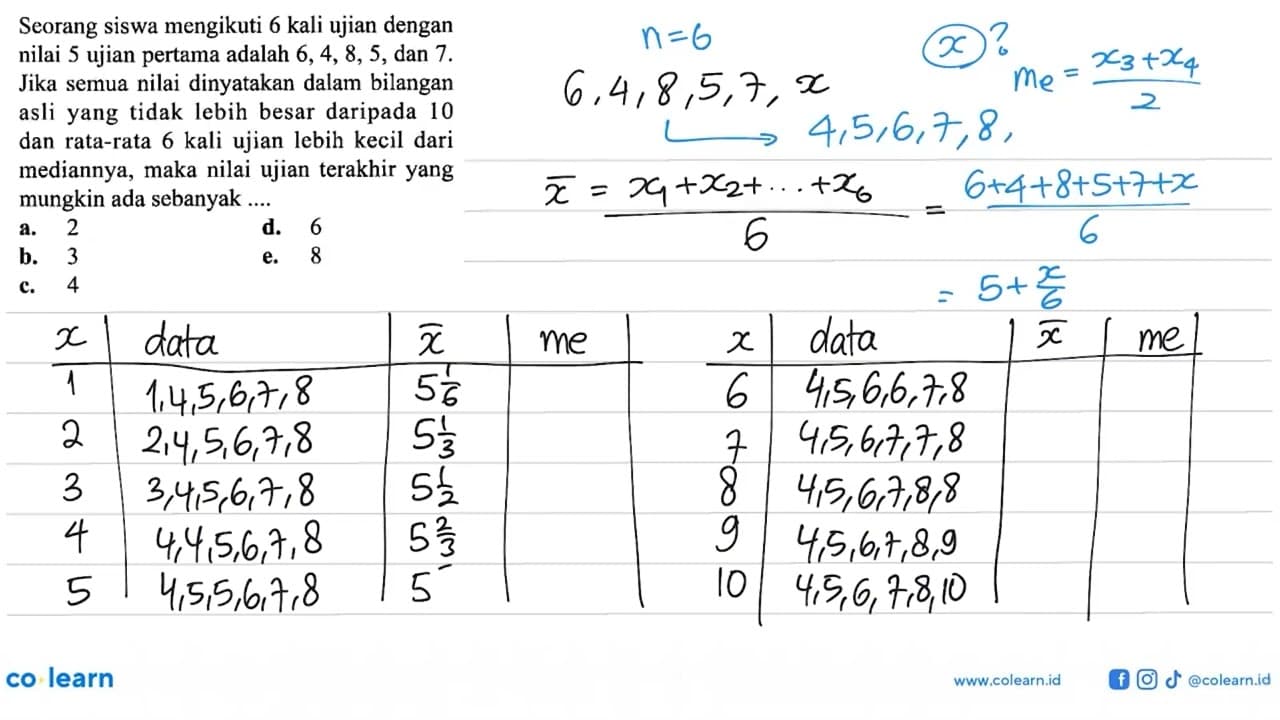 Seorang siswa mengikuti 6 kali ujian dengan
nilai 5 ujian pertama adalah 6, 4, 8, 5, dan 7.
Jika semua nilai dinyatakan dalam bilangan
asli yang tidak lebih besar daripada 10
dan rata-rata 6 kali ujian lebih kecil dari
mediannya, maka nilai ujian terakhir yang
mungkin ada sebanyak ....
a. 2 d. 6
b. 3 e. 8
c. 4
n=6
6,4,8,5,7,x
4,5,6,7,8,
x ?
me = (x₃+x₄)/2
x̅ = (x₁+x₂+...+x₆)/6 = (6+4+8+5+7+x)/6
= 5+x/6
x data x̅ me
1 1,4,5,6,7,8 5 1/6
2 2,4,5,6,7,8 5 1/3
3 3,4,5,6,7,8 5 1/2
4 4,4,5,6,7,8 5 2/3
5 4,5,5,6,7,8 5
x data x̅ me
6 4,5,6,6,7,8
7 4,5,6,7,7,8
8 4,5,6,7,8,8
9 4,5,6,7,8,9
10 4,5,6,7,8,10
co learn
www.colearn.id
@colearn.id